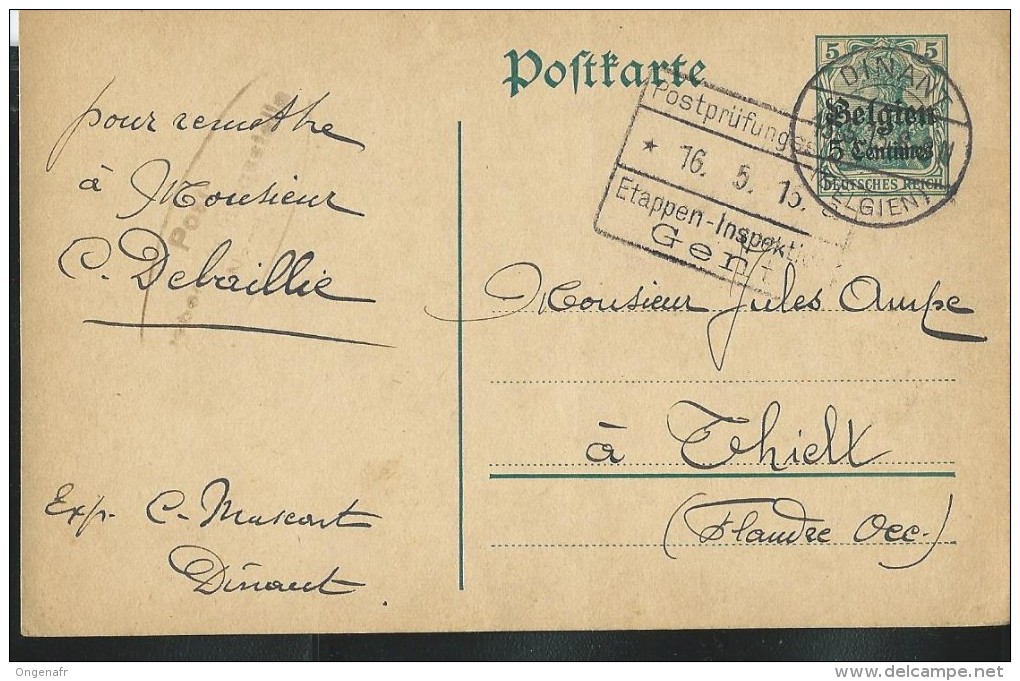 Postkarte
5 5
Belgien
5 Centimes
DEUTSCHES REICH
DINANT
(BELGIEN)
Postprüfungs
* 16. 5. 15.
Etappen-Inspektion
Gent
pour remettre
à Monsieur
C. Debaillie
Monsieur Jules Ampe
à Thielt
(Flandre Occ.)
Exp. C. Mascart
Dinant.
Ongenafr
www.delcampe.net